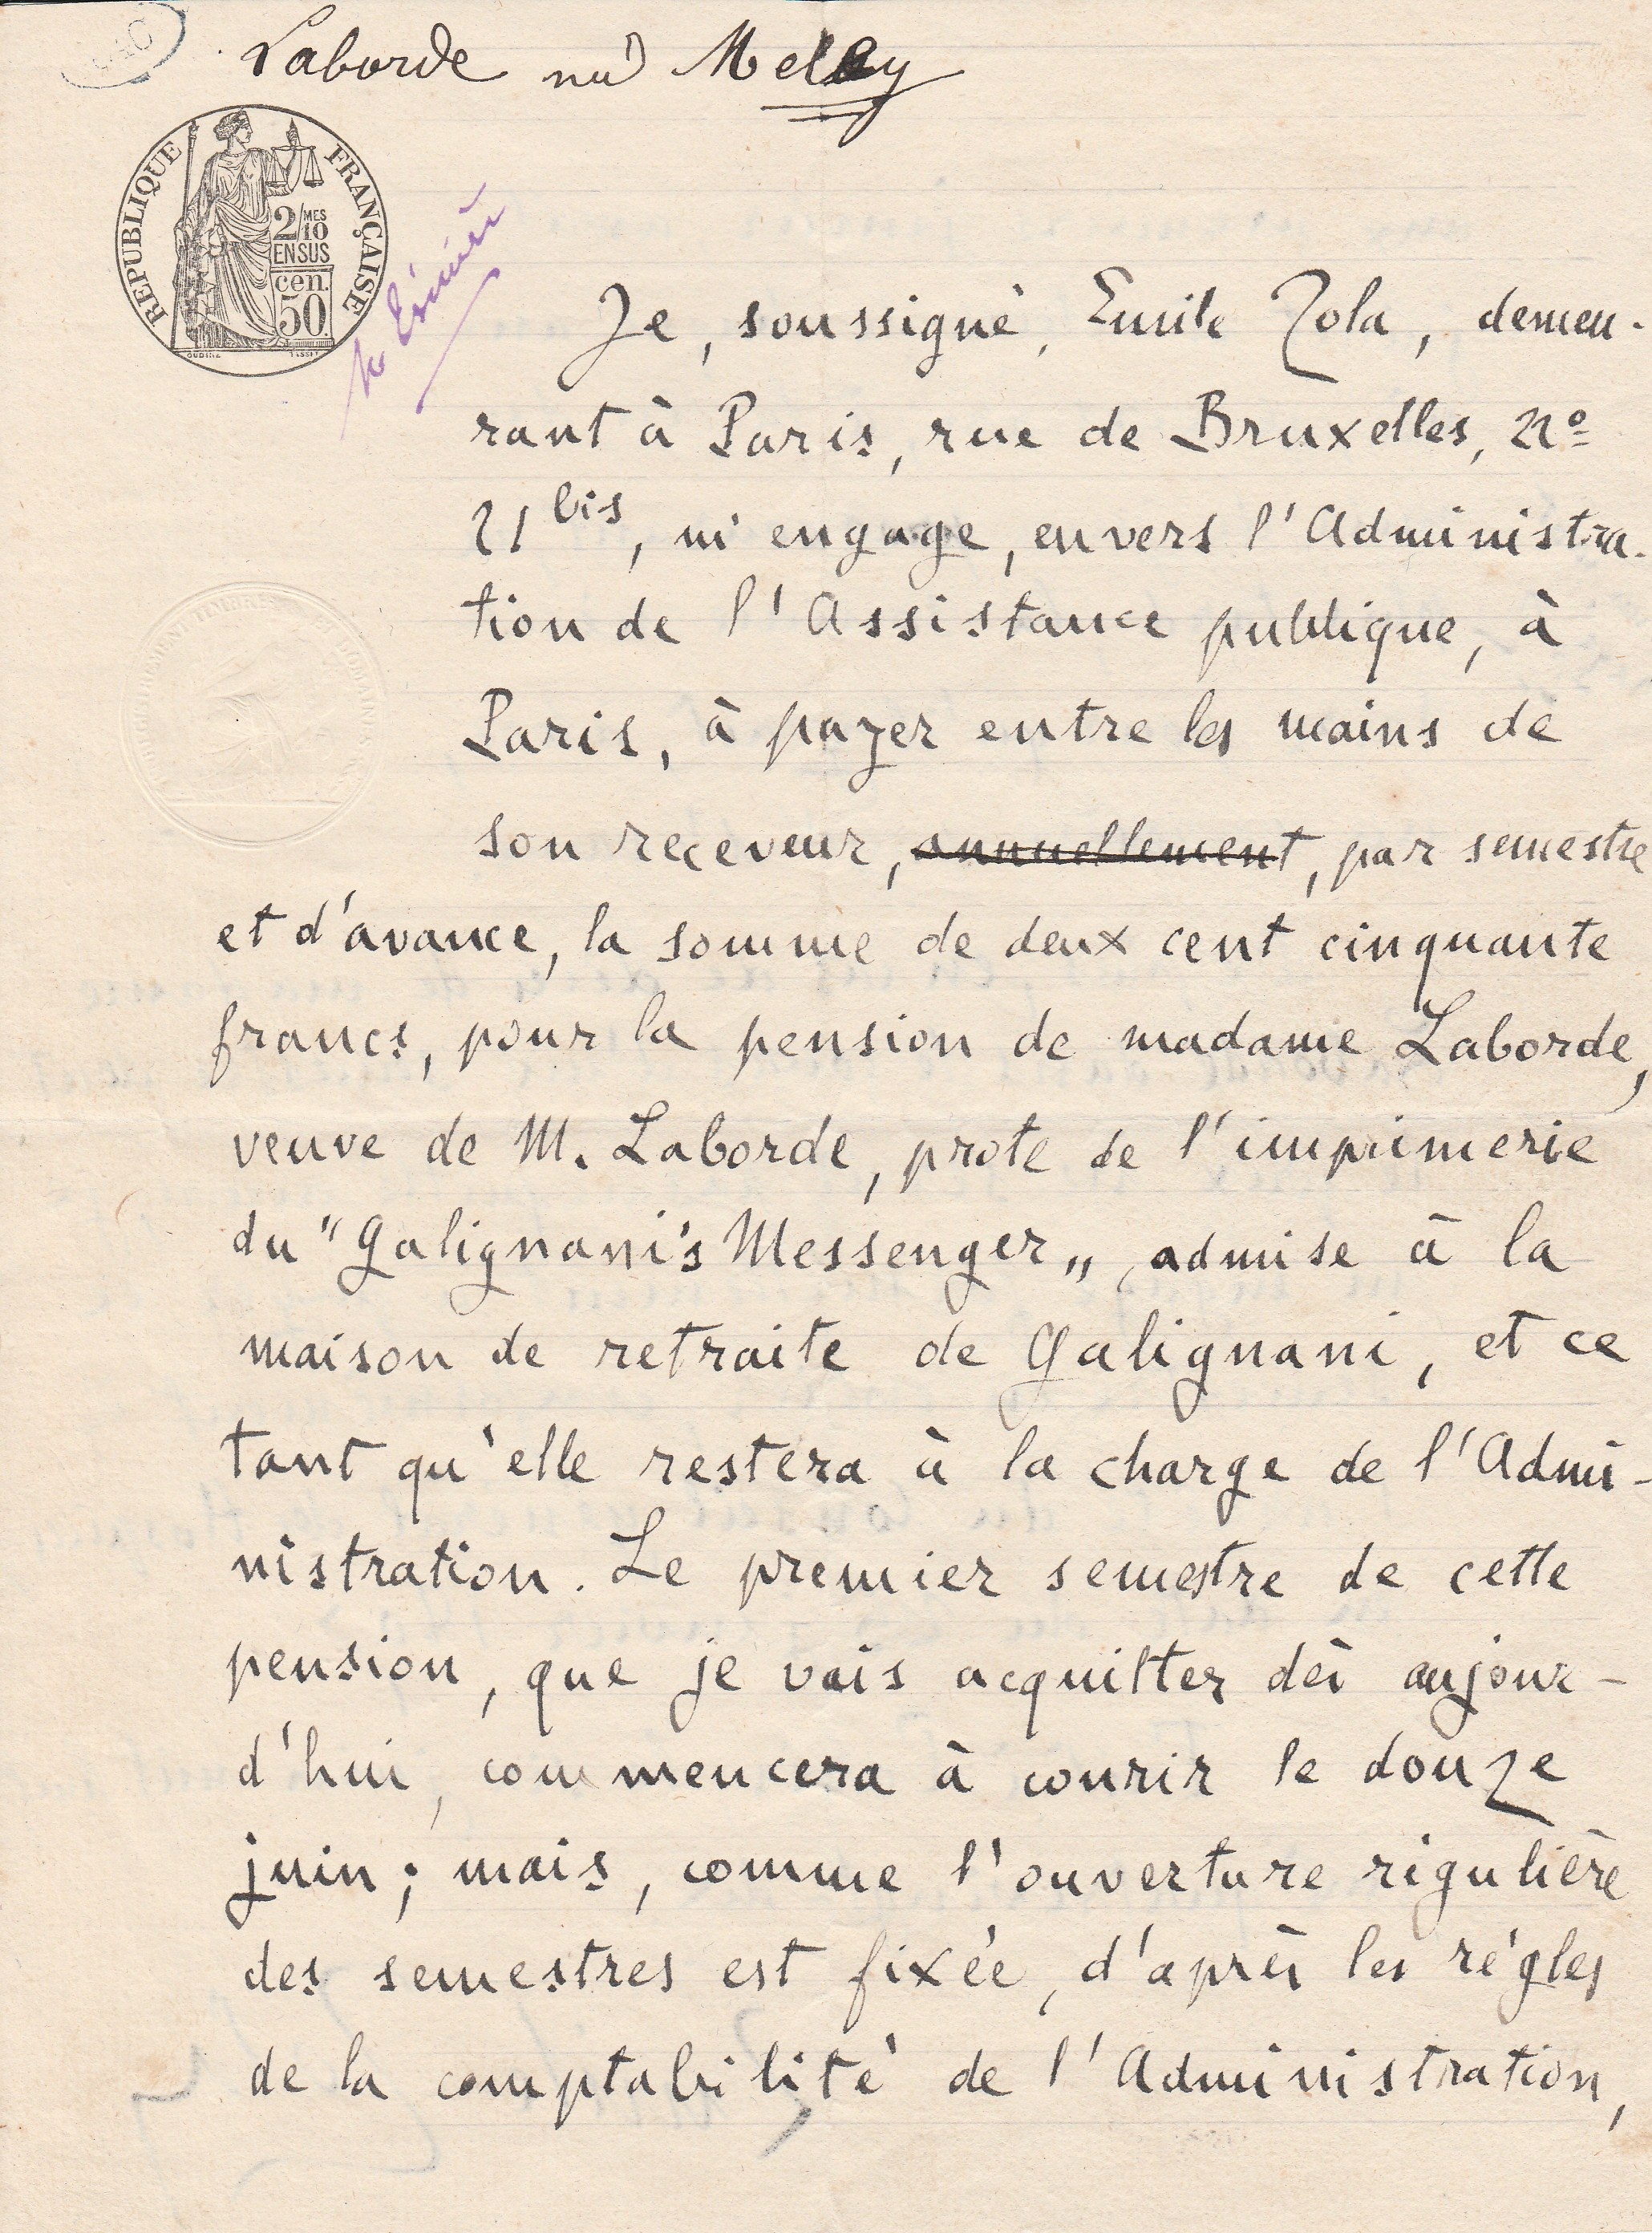 Laborde née
REPUBLIQUE FRANÇAISE
2/MES
10
EN SUS
cen.
50
OUDINÉ
TASSET
Je, soussigné, Emile Zola, demeu-
rant à Paris, rue de Bruxelles, no
21 bis, m'engage, envers l'Administra-
tion de l'Assistance publique, à
Paris, à payer entre les mains de
son receveur, annuellement, par semestre
et d'avance, la somme de deux cent cinquante
francs, pour la pension de madame Laborde,
veuve de M. Laborde, prote de l'imprimerie
du "Galignani's Messenger", admise à la
maison de retraite de Galignani, et ce
tant qu'elle restera à la charge de l'Admi-
nistration. Le premier semestre de cette
pension, que je vais acquitter dès aujour-
d'hui, commencera à courir le douze
juin; mais, comme l'ouverture régulière
des semestres est fixée, d'après les règles
de la comptabilité de l'Administration,